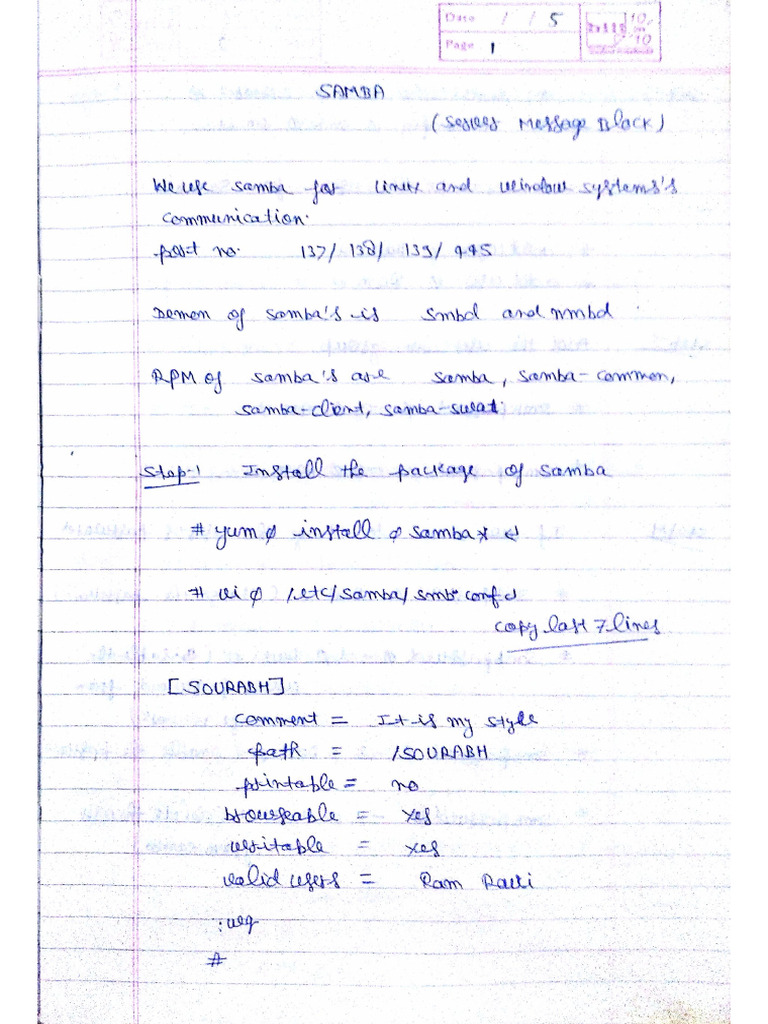 Date / / 5
Page 1
SAMBA
(Server Message Block)
We use samba for linux and window systems's
communication.
port no. 137/ 138/ 139/ 445
Demon of samba's is smbd and nmbd
RPM of samba's are samba, samba-common,
samba-client, samba-swat.
Step-1 Install the package of samba
# yum ∅ install ∅ samba* ↵
# vi ∅ /etc/samba/smb.conf ↵
copy last 7 lines
[SOURABH]
comment = It is my style
path = /SOURABH
printable = no
browseable = yes
writable = yes
valid users = Ram Ravi
:wq
#